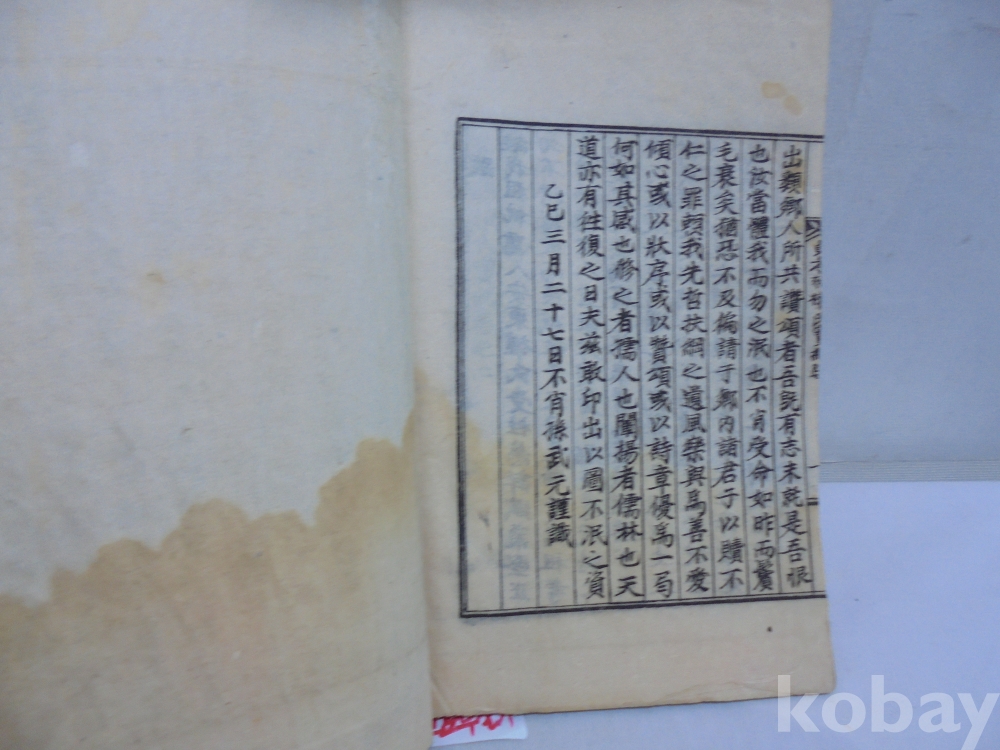 出類鄕人所共讚頌者吾旣有志未就是吾恨
也汝當體我而勿之泯也不肖受命如昨而鬢
毛衰矣猶恐不及搞請于鄕內諸君子以贖不
仁之罪賴我先哲扶綱之遺風樂與爲善不愛
傾心或以狀序或以贊頌或以詩章優爲一局
何如其感也修之者孺人也闡揚者儒林也天
道亦有往復之日夫玆敢印出以圖不泯之資
乙巳三月二十七日不肖孫武元謹識
kobay